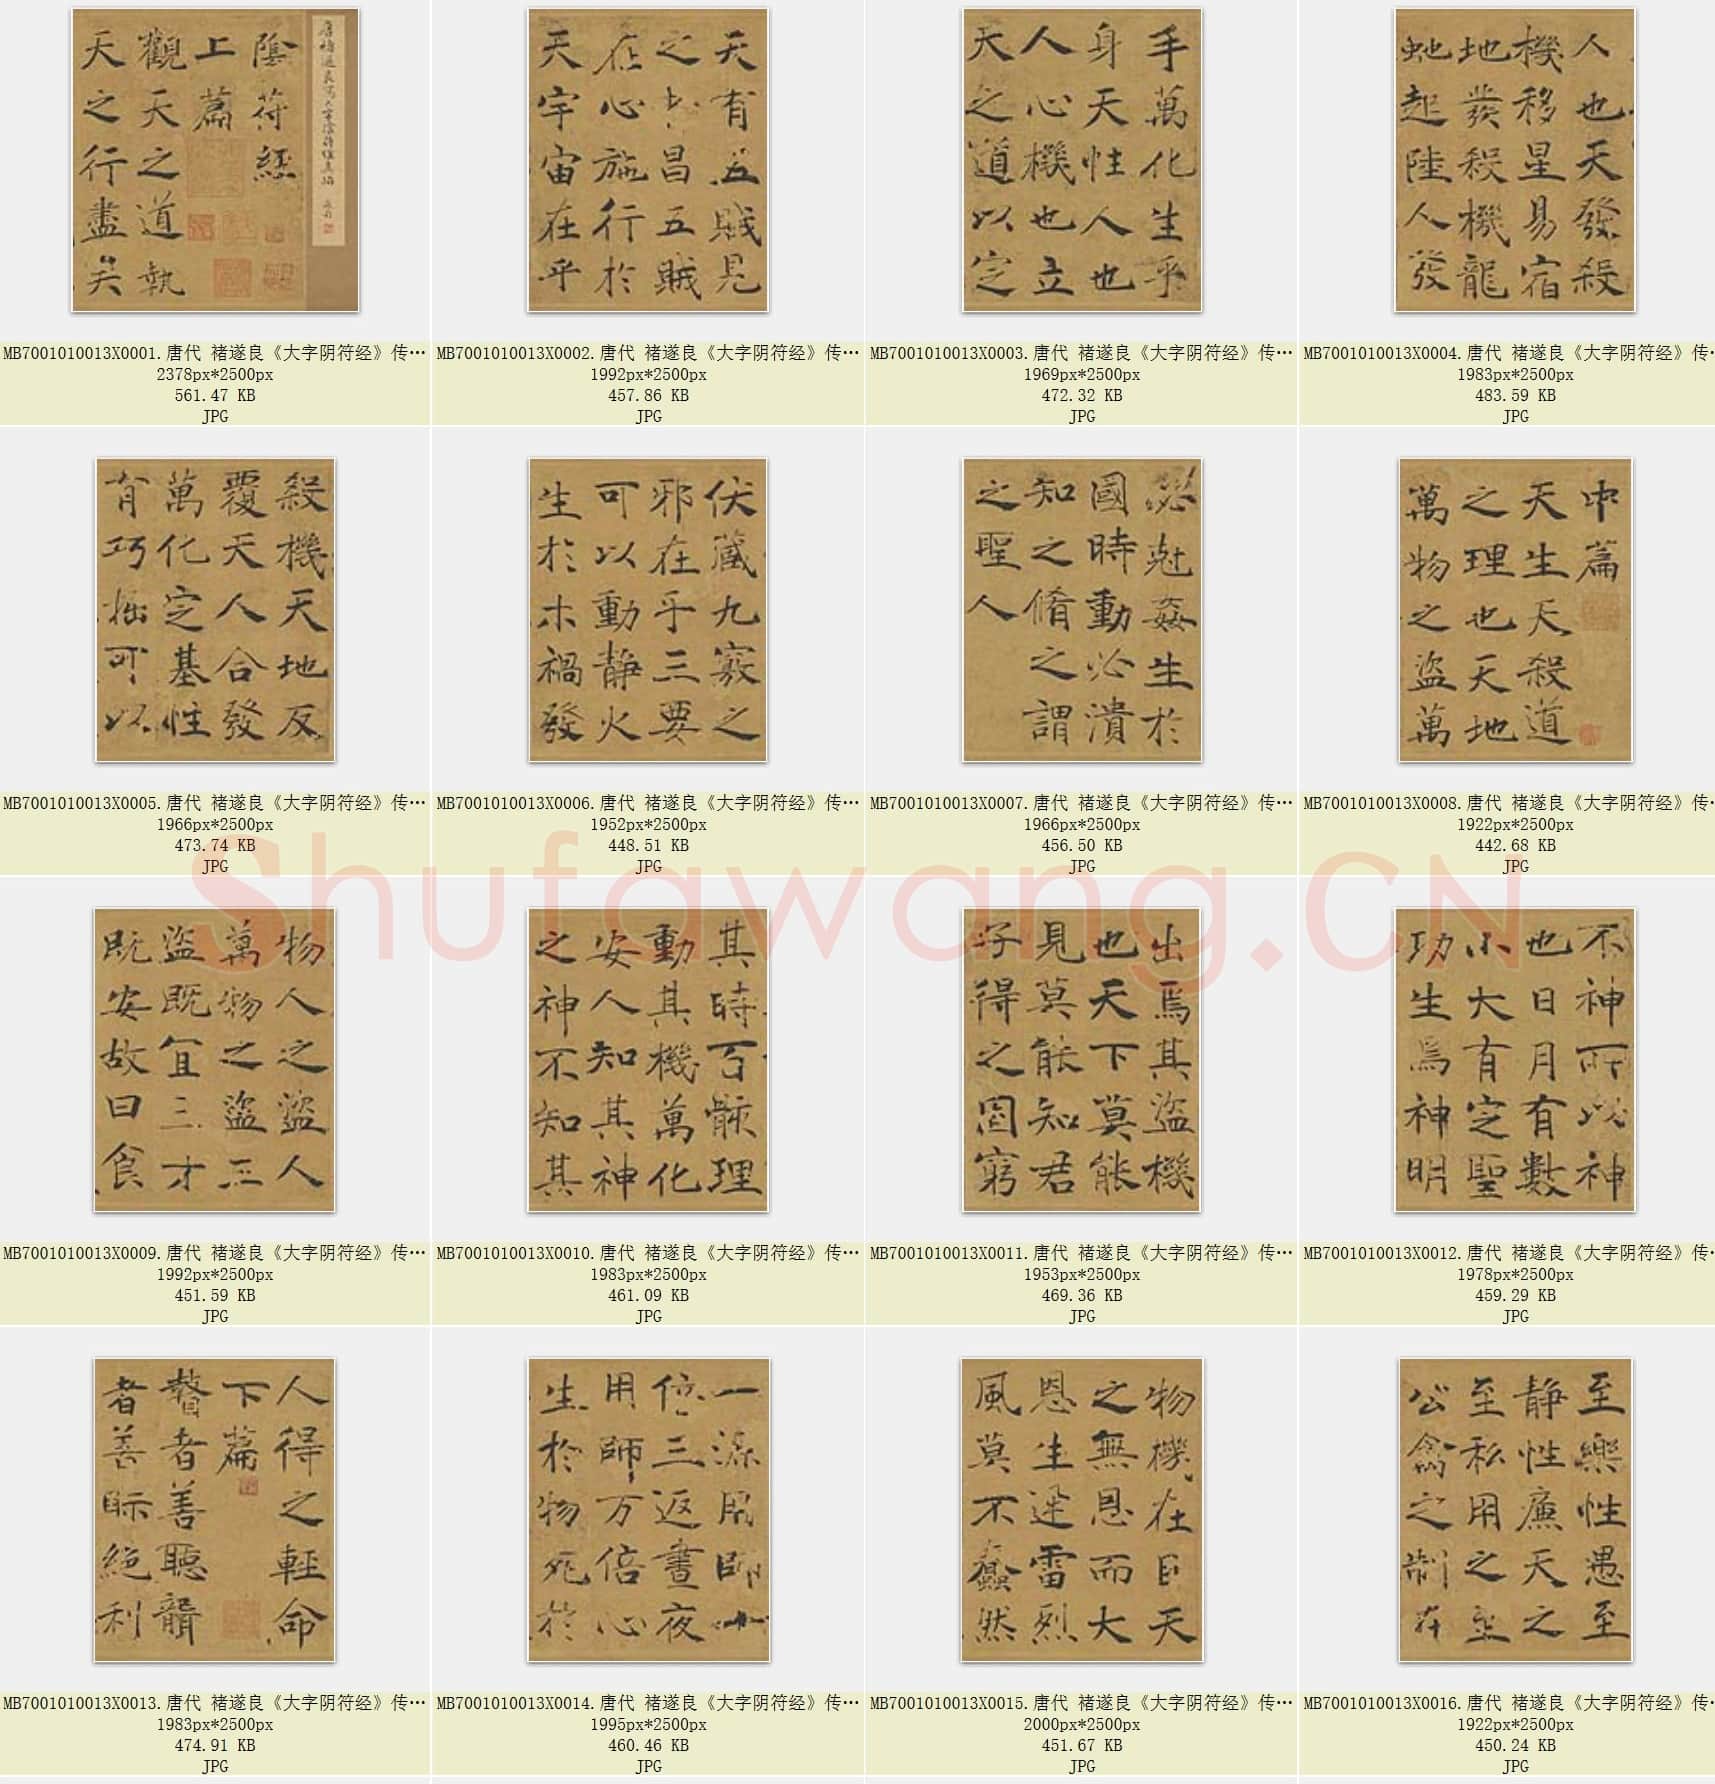 陰符經
上篇
觀天之道執
天之行盡矣
MB7001010013X0001.唐代 褚遂良《大字阴符经》传…
2378px*2500px
561.47 KB
JPG
天有五賊見
之者昌五賊
在心施行於
天宇宙在乎
MB7001010013X0002.唐代 褚遂良《大字阴符经》传…
1992px*2500px
457.86 KB
JPG
手萬化生乎
身天性人也
人心機也立
天之道以定
MB7001010013X0003.唐代 褚遂良《大字阴符经》传…
1969px*2500px
472.32 KB
JPG
人也天發殺
機移星易宿
地發殺機龍
虵起陸人發
MB7001010013X0004.唐代 褚遂良《大字阴符经》传…
1983px*2500px
483.59 KB
JPG
殺機天地反
覆天人合發
萬化定基性
有巧拙可以
MB7001010013X0005.唐代 褚遂良《大字阴符经》传…
1966px*2500px
473.74 KB
JPG
伏藏九竅之
邪在乎三要
可以動靜火
生於木禍發
MB7001010013X0006.唐代 褚遂良《大字阴符经》传…
1952px*2500px
448.51 KB
JPG
必尅姦生於
國時動必潰
知之脩之謂
之聖人
MB7001010013X0007.唐代 褚遂良《大字阴符经》传…
1966px*2500px
456.50 KB
JPG
中篇
天生天殺道
之理也天地
萬物之盜萬
MB7001010013X0008.唐代 褚遂良《大字阴符经》传…
1922px*2500px
442.68 KB
JPG
Shufawang.CN
物人之盜人
萬物之盜三
盜既宜三才
既安故曰食
MB7001010013X0009.唐代 褚遂良《大字阴符经》传…
1992px*2500px
451.59 KB
JPG
其時百骸理
動其機萬化
安人知其神
之神不知其
MB7001010013X0010.唐代 褚遂良《大字阴符经》传…
1983px*2500px
461.09 KB
JPG
出焉其盜機
也天下莫能
見莫能知君
子得之固窮
MB7001010013X0011.唐代 褚遂良《大字阴符经》传…
1953px*2500px
469.36 KB
JPG
不神所以神
也日月有數
小大有定聖
功生焉神明
MB7001010013X0012.唐代 褚遂良《大字阴符经》传…
1978px*2500px
459.29 KB
JPG
人得之輕命
下篇
瞽者善聽聾
者善眎絕利
MB7001010013X0013.唐代 褚遂良《大字阴符经》传…
1983px*2500px
474.91 KB
JPG
一源用師十
倍三返晝夜
用師万倍心
生於物死於
MB7001010013X0014.唐代 褚遂良《大字阴符经》传…
1995px*2500px
460.46 KB
JPG
物機在目天
之無恩而大
恩生迅雷烈
風莫不蠢然
MB7001010013X0015.唐代 褚遂良《大字阴符经》传…
2000px*2500px
451.67 KB
JPG
至樂性愚至
靜性廉天之
至私用之至
公禽之制在
MB7001010013X0016.唐代 褚遂良《大字阴符经》传…
1922px*2500px
450.24 KB
JPG